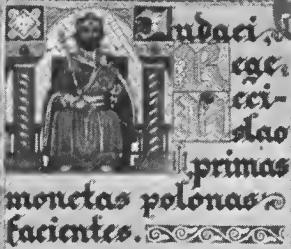 Iudaei,
Rege
Mieci-
slao
primas
monetas polonas
facientes.